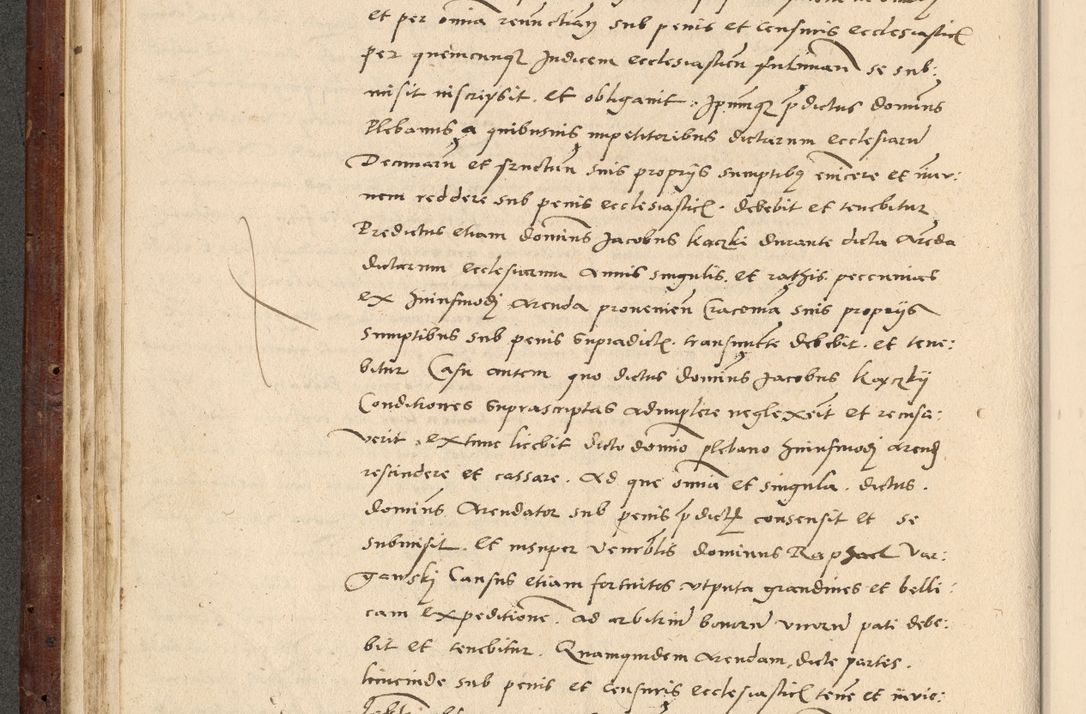 et per omnia renunctiavit sub penis et censuris ecclesiasticis
per quemcunque Judicem ecclesiasticum fulminan se sub:
misit inscripsit. et obligavit. Ipsumque pdictus dominus
Plebanus a quibusuis impetitoribus dictarum ecclesiarum
Decimarum et fructuum suis proprijs sumptibus evincere et inter:
nem reddere sub penis ecclesiastic. debebit et tenebitur
Predictus etiam dominus Jacobus kaczki durante dicta Areda
dictarum ecclesiarum Annis singulis et rathis peccunias
ex huiusmodj Arenda provenien Cracoviam suis proprijs
sumptibus sub penis supradict. transmitte debebit. et tene:
bitur Casu autem quo dictus dominus Jacobus kaczkij
Conditiones suprascriptas adimplere neglexerit et recusa:
verit, extunc licebit dicto domino plebano huiusmodj Arend
rescindere et cassare. Ad que omnia et singula. dictus.
dominus Arendator sub penis pdict consensit et se
submisit. Et insuper venerblis dominus Raphael Var:
gawskj Casus etiam fortuitos utputa grandines et belli:
cam expeditionem. ad arbitrium bonorum virorum pati debe:
bit et tenebitur. Quamquidem Arendam, dicte partes.
hincinde sub penis et censuris ecclesiastic tene et invio: